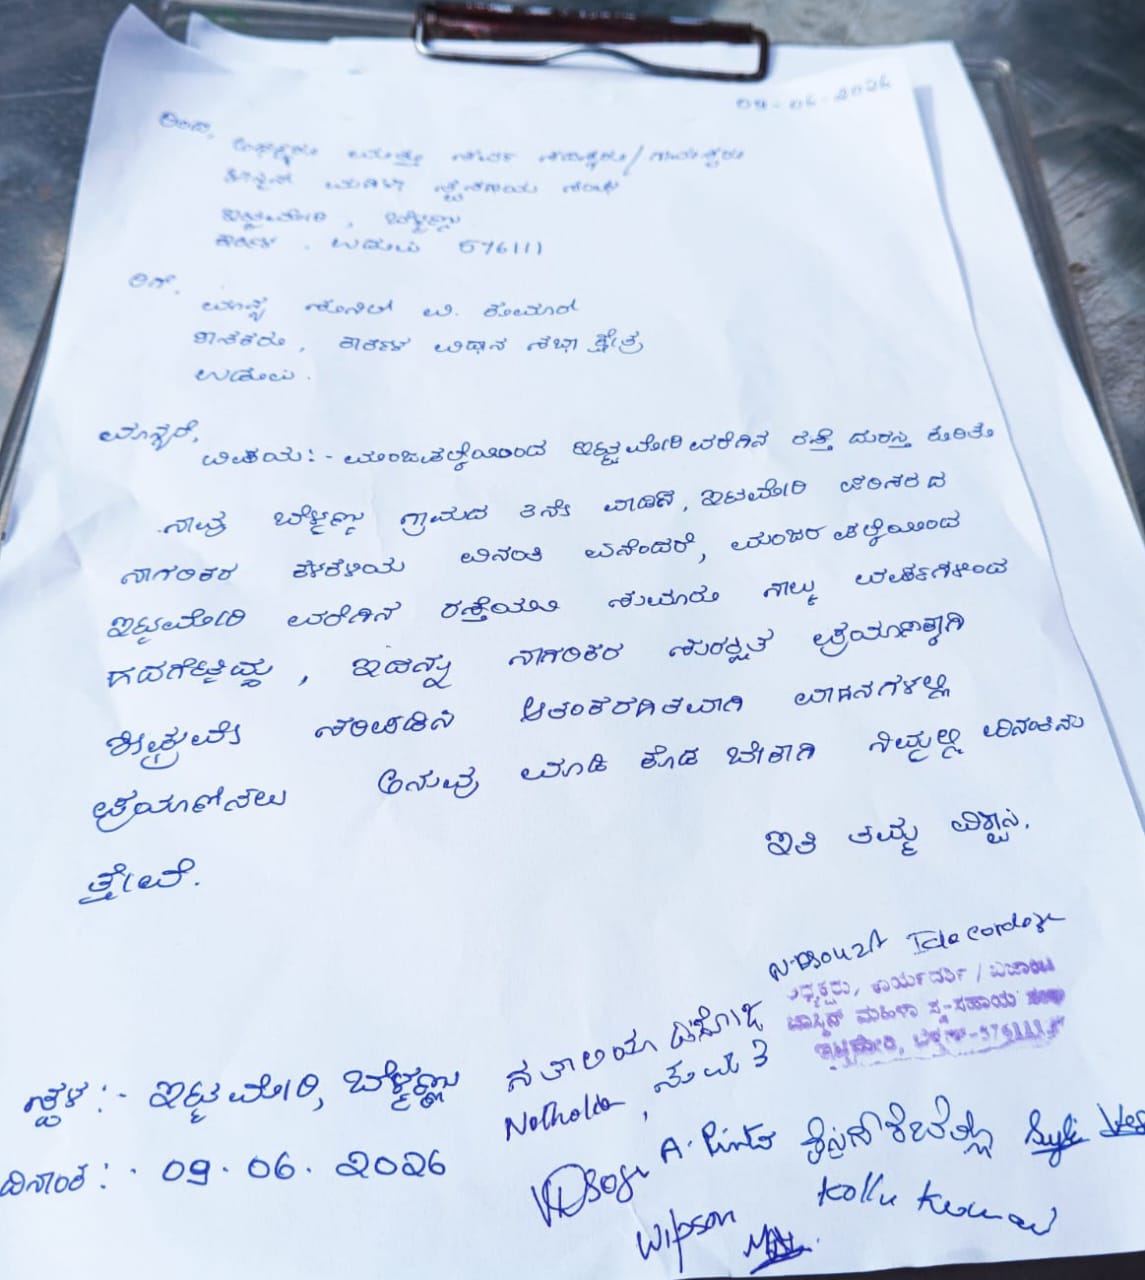 09-06-2026
ಇಂದ,
ಅಧ್ಯಕ್ಷರು ಮತ್ತು ಸರ್ವ ಸದಸ್ಯರು/
ಮಹಿಳಾ ಸ್ವಸಹಾಯ ಸಂಘ
ಇಟ್ಟಮೇರಿ, ಬೆಳ್ಮಣ್ಣು
ಕಾರ್ಕಳ. ಉಡುಪಿ 576111
ರಿಗೆ,
ಮಾನ್ಯ ಸುನಿಲ್ ವಿ. ಕುಮಾರ್
ಶಾಸಕರು, ಕಾರ್ಕಳ ವಿಧಾನ ಸಭಾ ಕ್ಷೇತ್ರ
ಉಡುಪಿ.
ಮಾನ್ಯರೆ,
ವಿಷಯ:- ಇಟ್ಟಮೇರಿ ವರೆಗಿನ ರಸ್ತೆ ದುರಸ್ತಿ ಕುರಿತು
ನಾವು ಬೆಳ್ಮಣ್ಣು ಗ್ರಾಮದ 3ನೇ ವಾರ್ಡಿನ, ಇಟ್ಟಮೇರಿ ಪರಿಸರದ
ನಾಗರಿಕರ ಕಳಕಳಿಯ ವಿನಂತಿ ಏನೆಂದರೆ,
ಇಟ್ಟಮೇರಿ ವರೆಗಿನ ರಸ್ತೆಯು ಸುಮಾರು ನಾಲ್ಕು ವರ್ಷಗಳಿಂದ
ಹದಗೆಟ್ಟಿದ್ದು, ಇದನ್ನು ನಾಗರಿಕರ ಸುರಕ್ಷಿತ ಪ್ರಯಾಣಕ್ಕಾಗಿ
ಶೀಘ್ರವೇ ಸರಿಪಡಿಸಿ ಆತಂಕರಹಿತವಾಗಿ ವಾಹನಗಳಲ್ಲಿ
ಪ್ರಯಾಣಿಸಲು ಅನುವು ಮಾಡಿ ಕೊಡ ಬೇಕಾಗಿ ನಿಮ್ಮಲ್ಲಿ ವಿನಂತಿಸು
ತ್ತೇವೆ.
ಇತಿ ತಮ್ಮ ವಿಶ್ವಾಸಿ,
ಅಧ್ಯಕ್ಷರು, ಕಾರ್ಯದರ್ಶಿ/ಖಜಾಂಚಿ
ಮಹಿಳಾ ಸ್ವ-ಸಹಾಯ ಸಂಘ
ಇಟ್ಟಮೇರಿ, ಬೆಳ್ಮಣ್-576111
ಸ್ಥಳ:- ಇಟ್ಟಮೇರಿ, ಬೆಳ್ಮಣ್ಣು
ನತಾಲಿಯಾ ಡಿಸೋಜ
ದಿನಾಂಕ:- 09.06.2026
A. Pinto
Wipson